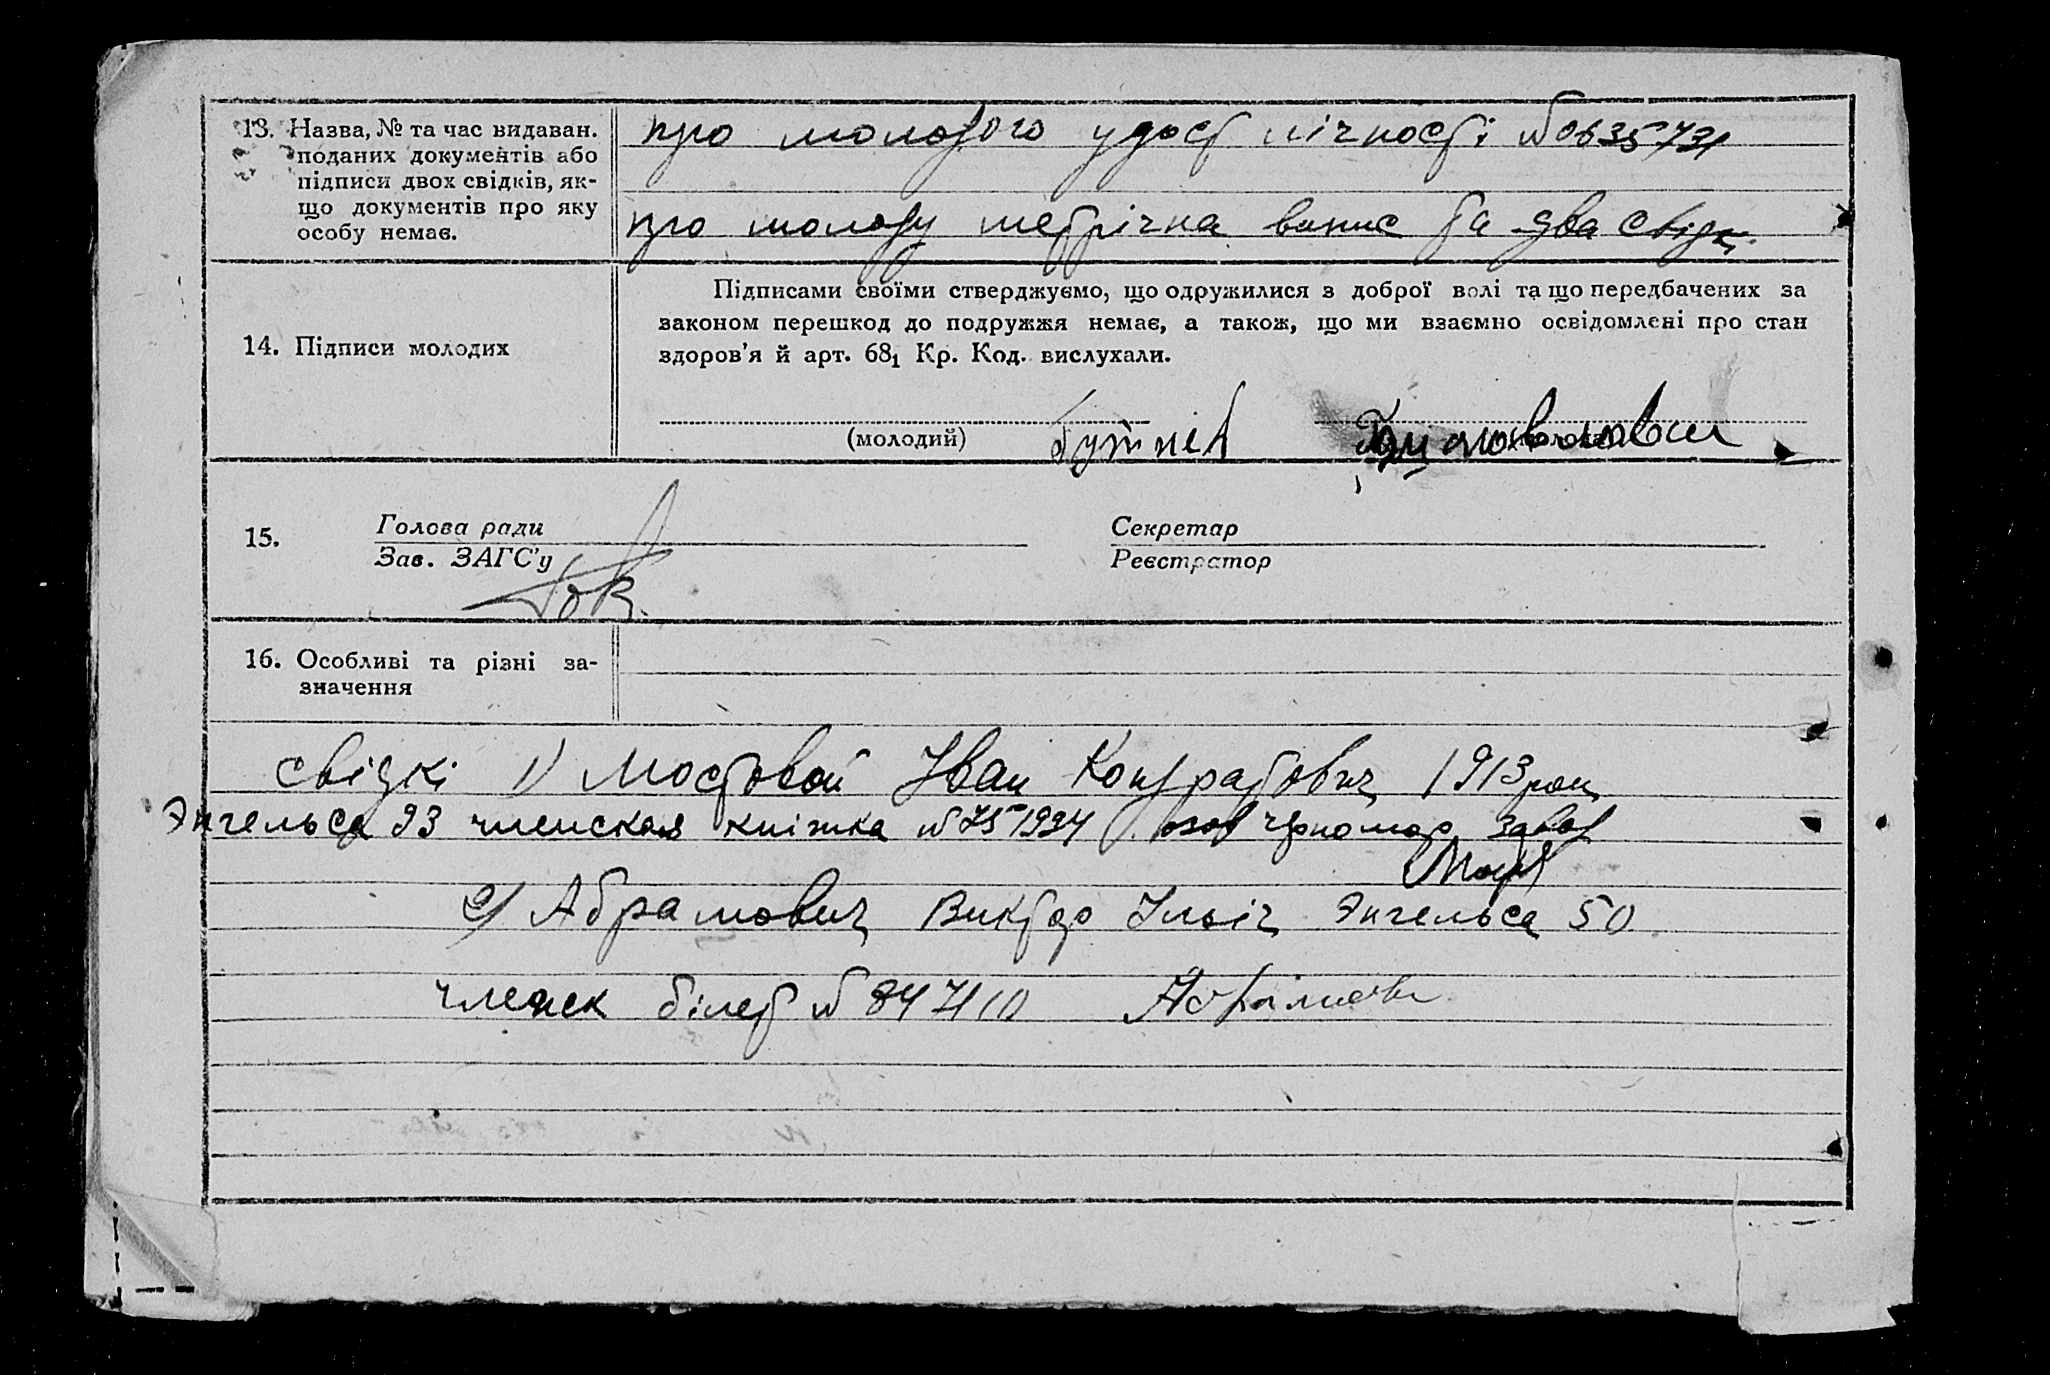 13. Назва, № та час видаван.
поданих документів або
підписи двох свідків, як-
що документів про яку
особу немає.
про молодого удост лічності № 0635731
про молоду метрічна випис та два свідк.
14. Підписи молодих
Підписами своїми стверджуємо, що одружилися з доброї волі та що передбачених за
законом перешкод до подружжя немає, а також, що ми взаємно освідомлені про стан
здоров'я й арт. 68₁ Кр. Код. вислухали.
(молодий)
15.
Голова ради
Зав. ЗАГС'у
Секретар
Реєстратор
16. Особливі та різні за-
значення
свідкі 1) Мостовой Іван Кондратович 1913 рок
Энгельса 93 членская кніжка № 75 1934 завод
2/ Абрамович Виктор Ільіч Энгельса 50
членск білет № 847110 Абрамович